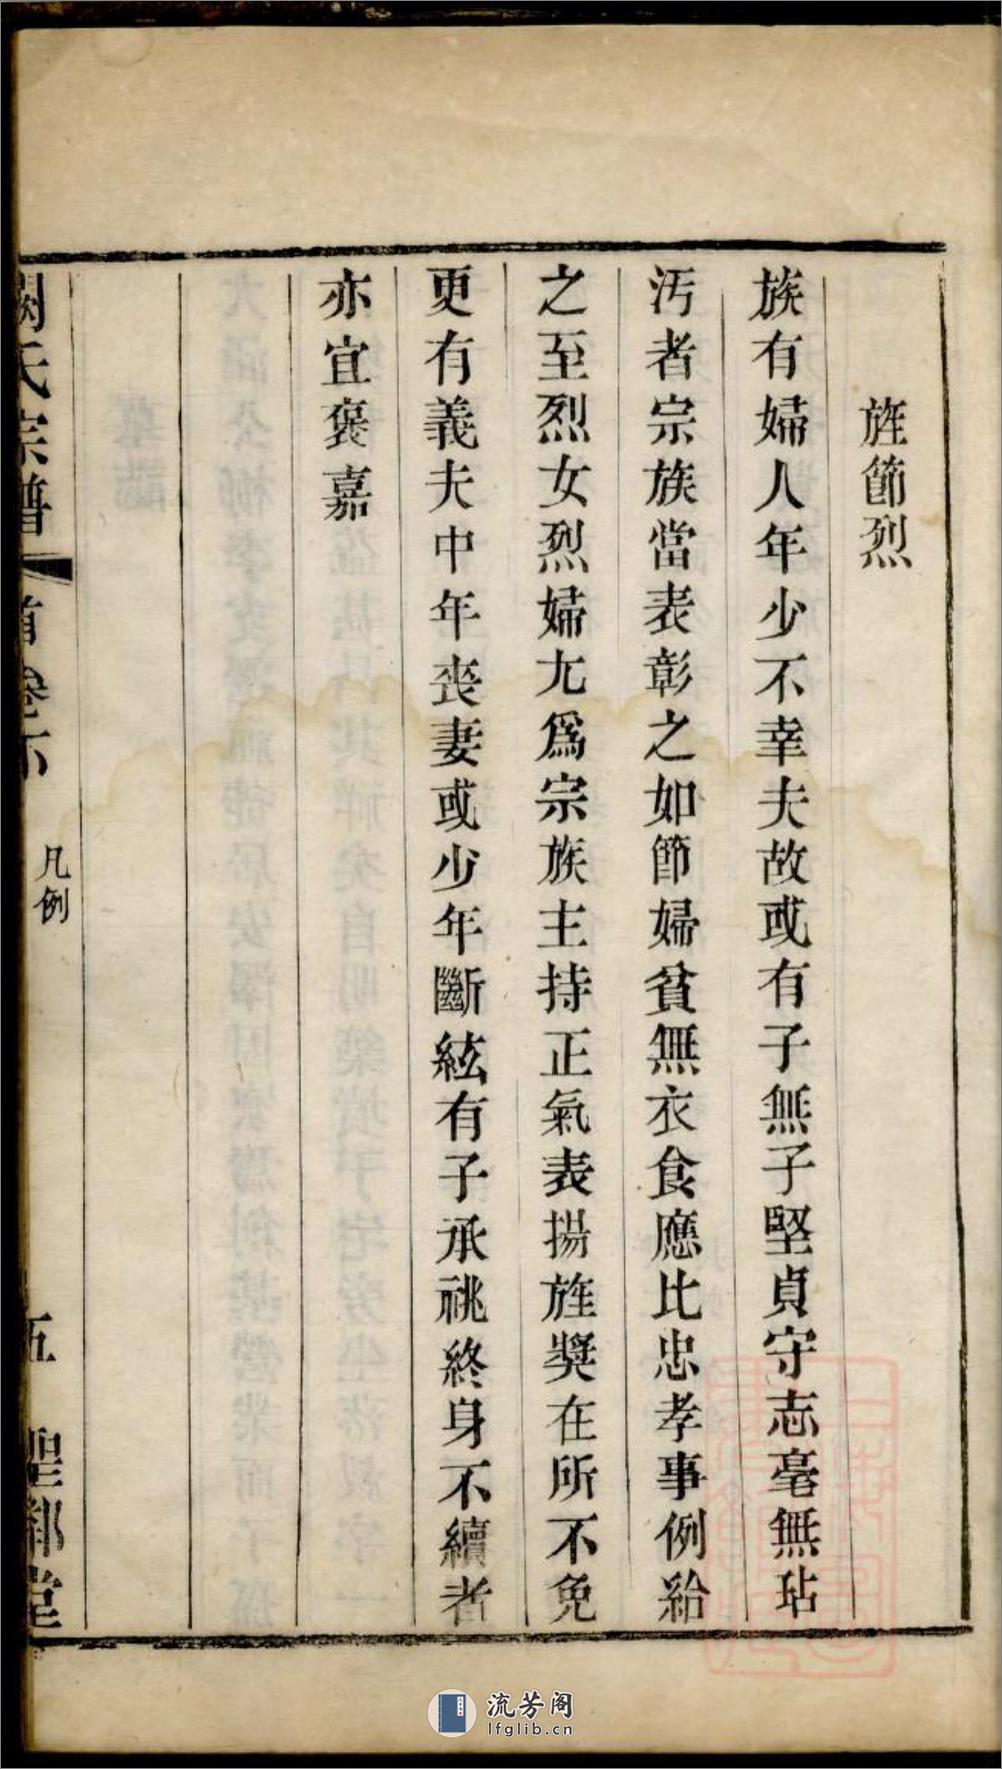 旌節烈
族有婦人年少不幸夫故或有子無子堅貞守志毫無玷
汚者宗族當表彰之如節婦貧無衣食應比忠孝事例給
之至烈女烈婦尢爲宗族主持正氣表揚旌奬在所不免
更有義夫中年喪妻或少年斷絃有子承祧終身不續者
亦宜褒嘉
氏宗譜
首卷下
凡例
五
聖鄰堂
流芳阁
lfglib.cn